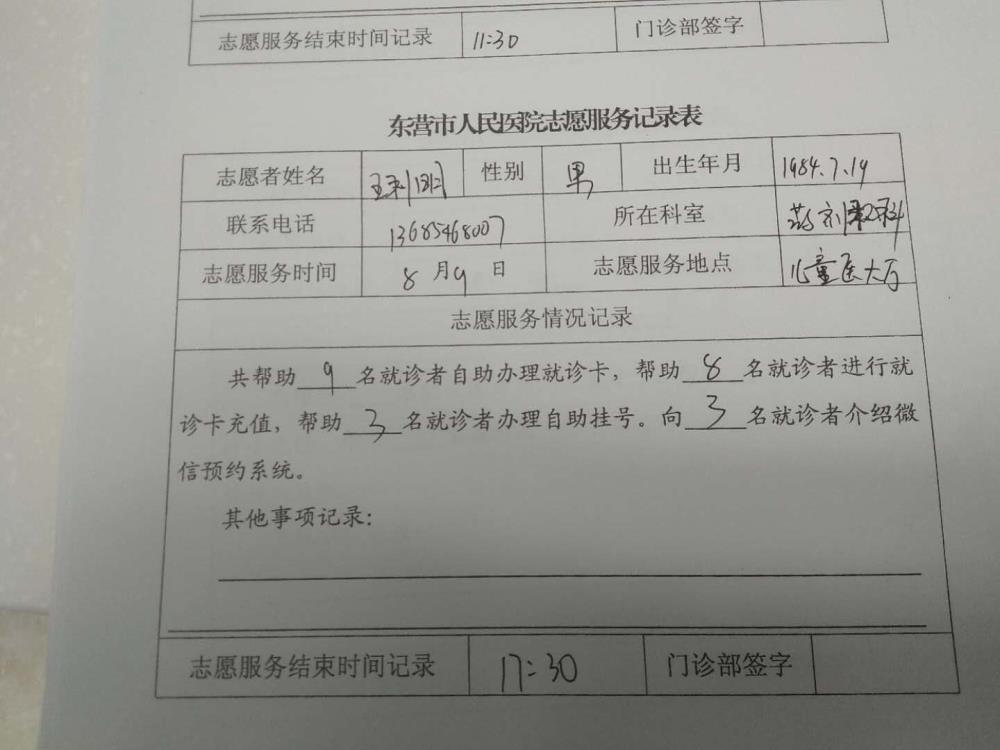 志愿服务结束时间记录 11:30 门诊部签字
东营市人民医院志愿服务记录表
志愿者姓名 王利明 性别 男 出生年月 1984.7.19
联系电话 13685468007 所在科室 药剂科
志愿服务时间 8月9日 志愿服务地点 儿童医大厅
志愿服务情况记录
共帮助9名就诊者自助办理就诊卡，帮助8名就诊者进行就
诊卡充值，帮助3名就诊者办理自助挂号。向3名就诊者介绍微
信预约系统。
其他事项记录：
志愿服务结束时间记录 17:30 门诊部签字